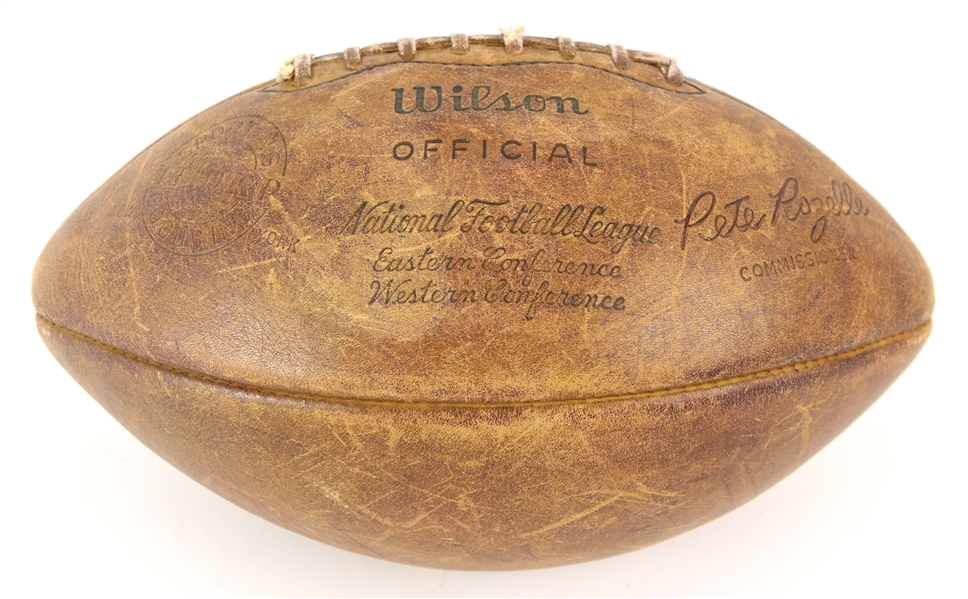 Wilson
OFFICIAL
National Football League
Eastern Conference
Western Conference
Pete Rozelle
COMMISSIONER